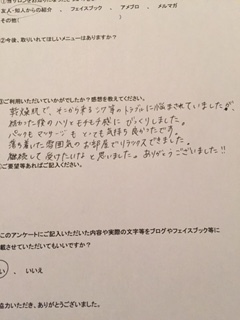 友人・知人からの紹介 、 フェイスブック 、 アメブロ 、 メルマガ
その他( )
②今後、取りいれてほしいメニューはありますか?
③ご利用いただいていかがでしたか?感想を教えてください。
乾燥肌で、そこから来るシワ等のトラブルに悩まされていましたが、
施術後のハリとモチモチ感にびっくりしました。
パックもマッサージもとっても気持ち良かったです。
落ち着いた雰囲気のお部屋でリラックスできました。
継続して受けたいなと思いました。ありがとうございました!!
ご要望等あればご記入ください。
このアンケートにご記入いただいた内容や実際の文字等をブログやフェイスブック等に
載させていただいてもいいですか?
い 、 いいえ
協力いただき、ありがとうございました。